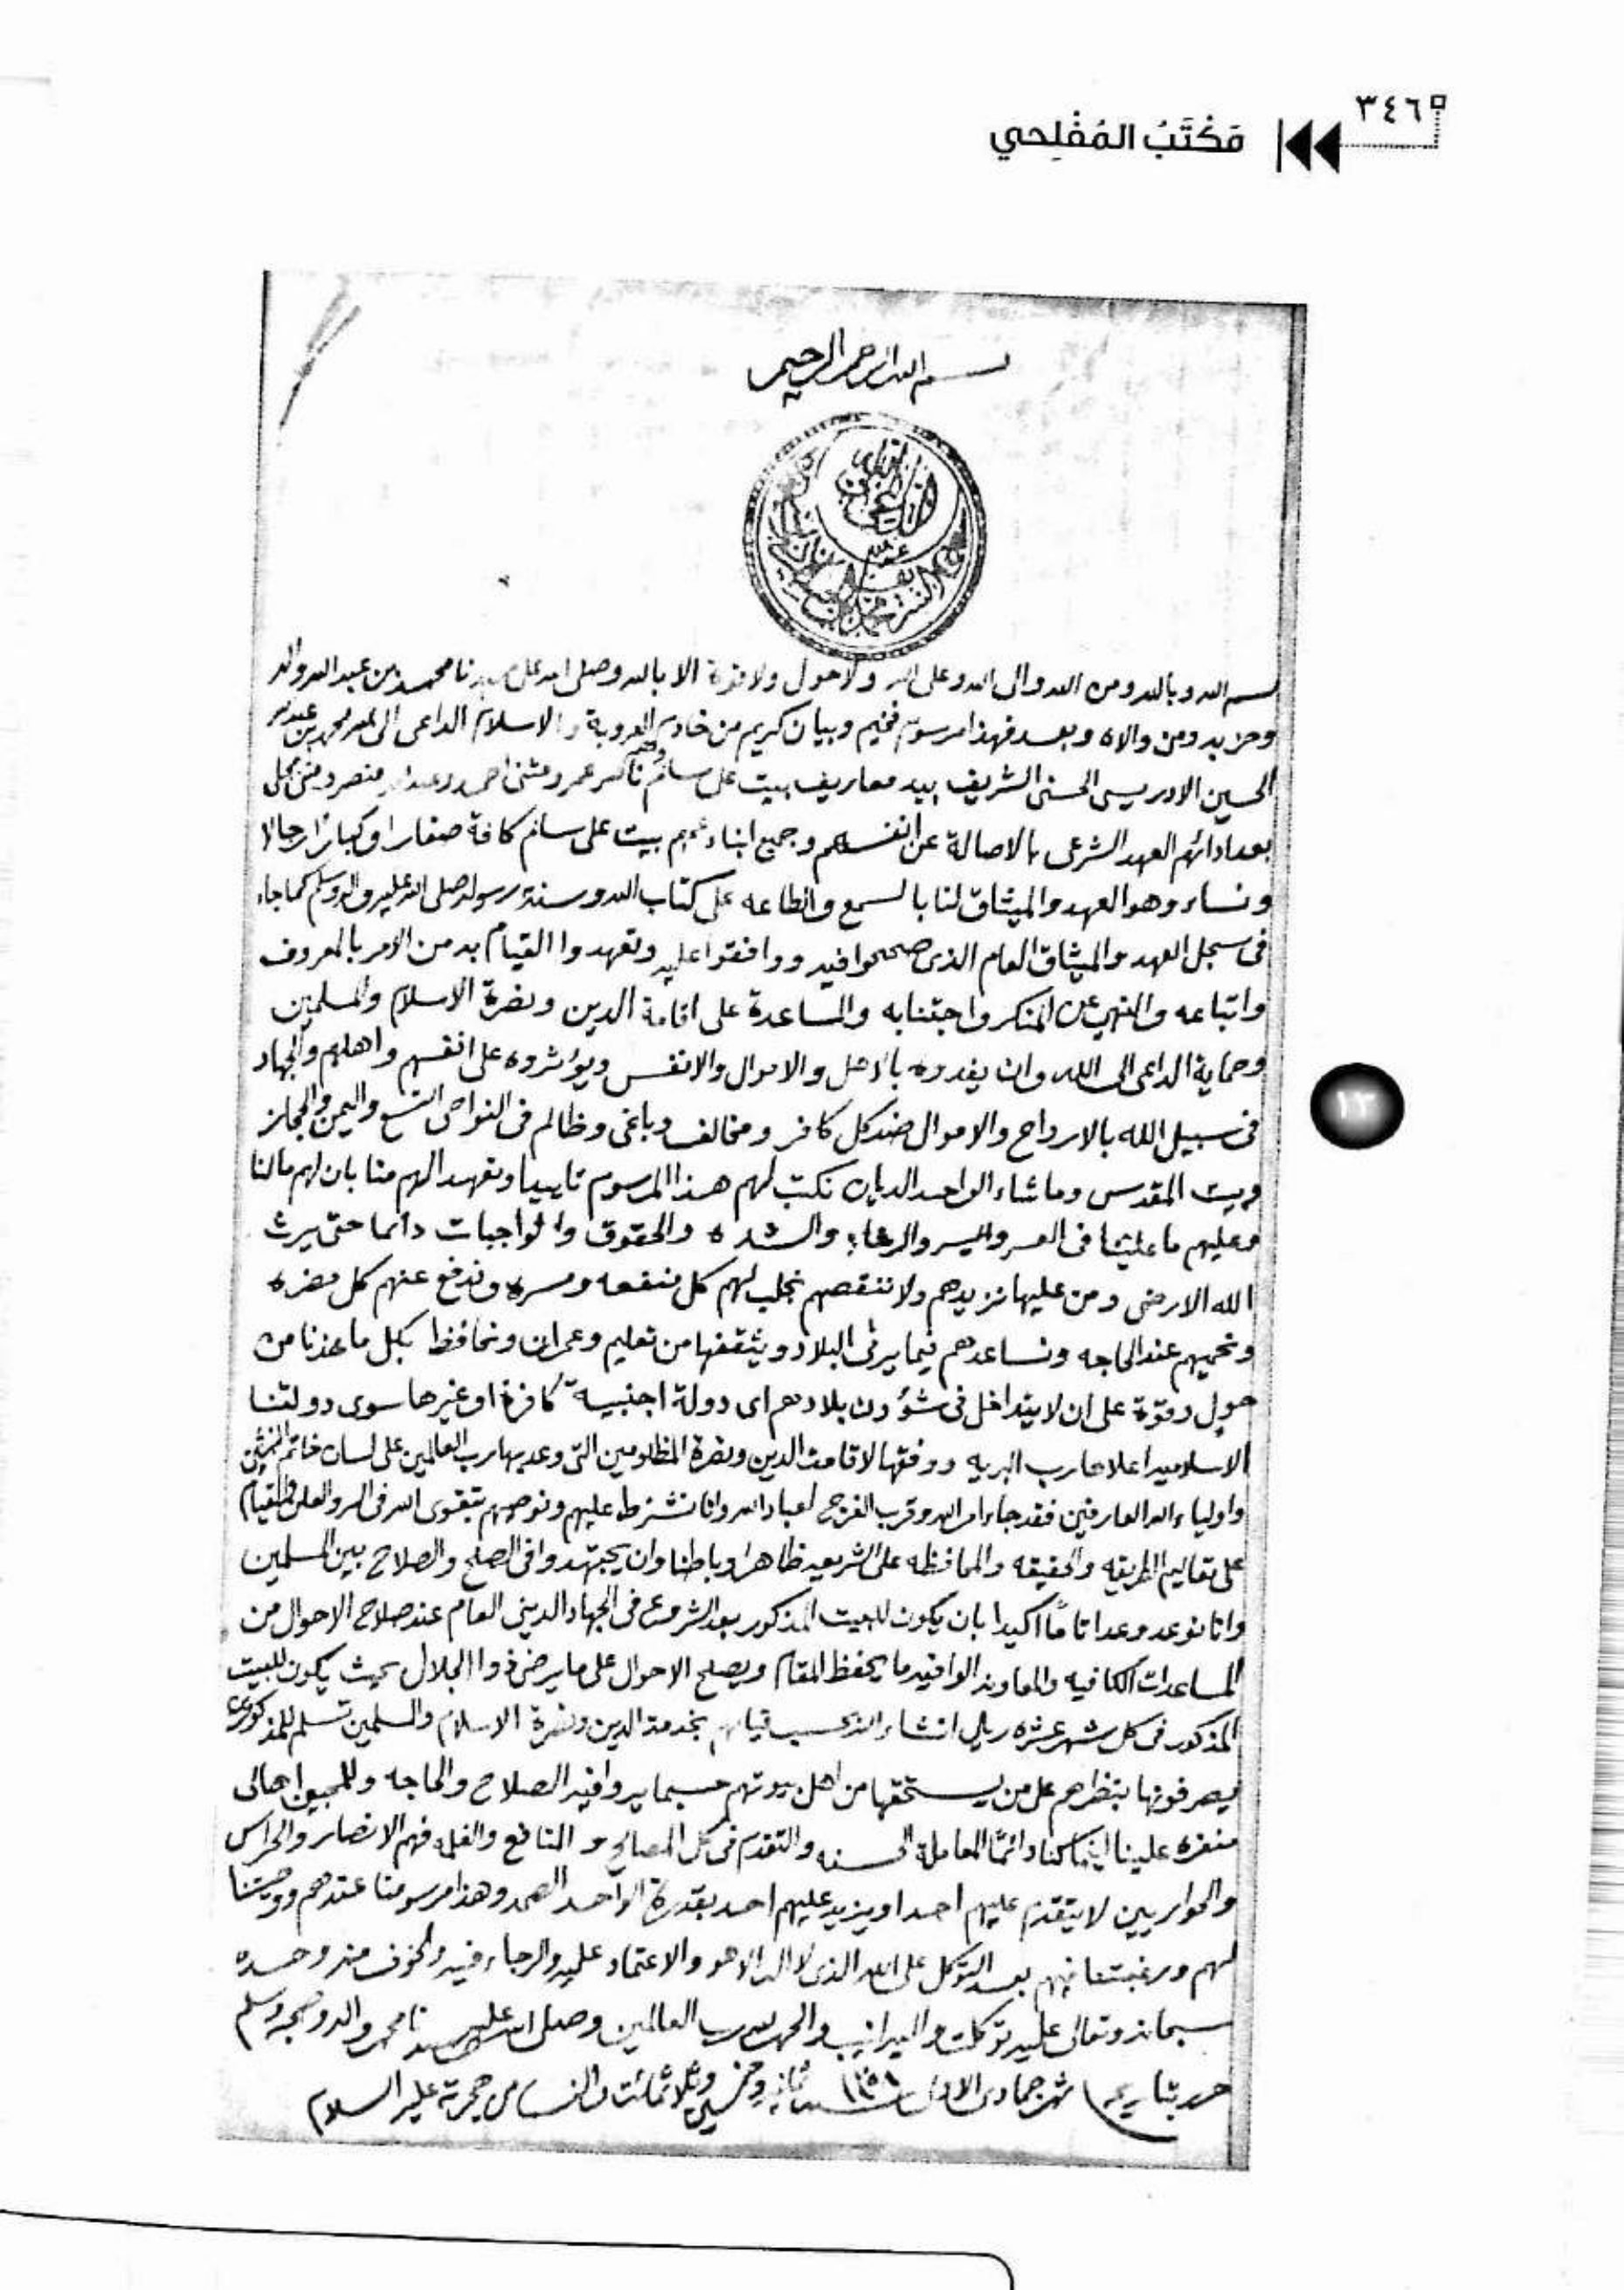 ٣٤٦
مَكْتَبُ المُفْلِحي
بسم الله الرحمن الرحيم
بسم الله وبالله ومن الله والى الله وعلى الله ولاحول ولا قوة الا بالله وصلى الله على سيدنا محمد بن عبد الله واله
وحزبه ومن والاه وبعد فهذا مرسوم فخيم وبيان كريم من خادم العروبة والاسلام الداعى الى الله محمد بن عبد الله
الحسين الادريسى الحسنى الشريف بيد معاريف بيت على سالم
بعد ادائهم العهد الشرعى بالاصالة عن انفسهم وجميع ابناء عمهم بيت على سالم كافة صغارا وكبارا رجالا
ونساء وهو العهد والميثاق لنا بالسمع والطاعه على كتاب الله وسنة رسوله صلى الله عليه واله وسلم كما جاء
فى سجل العهد والميثاق العام الذى صححوا فيه ووافقوا عليه وتعهدوا القيام به من الامر بالمعروف
واتباعه والنهي عن المنكر واجتنابه والمساعدة على اقامة الدين ونصرة الاسلام والمسلمين
وحماية الداعى الى الله وان يفدوه بالاهل والاموال والانفس ويؤثروه على انفسهم واهلهم والجهاد
فى سبيل الله بالارواح والاموال ضد كل كافر ومخالف وباغى وظالم فى النواحى التسع واليمن والحجاز
وبيت المقدس وما شاء الواحد الديان نكتب لهم هذا المرسوم تاييدا وتعهدا لهم منا بان لهم مالنا
وعليهم ما علينا فى العسر واليسر والرخاء والشده والحقوق والواجبات دائما حتى يرث
الله الارض ومن عليها نزيدهم ولا ننقصهم نجلب لهم كل منفعه ومسره وندفع عنهم كل مضره
ونحميهم عند الحاجه ونساعدهم فيما يرقى البلاد ويثقفها من تعليم وعمران ونحافظ بكل ما عندنا من
حول وقوة على ان لا يتداخل فى شؤون بلادهم اى دولة اجنبية كافرة او غيرها سوى دولتنا
الاسلاميه اعلاها رب البريه ووفقها لاقامة الدين ونصرة المظلومين التى وعد بها رب العالمين على لسان خاتم
واولياء الله العارفين فقد جاء امر الله وقرب الفرج لعباد الله وانا نشترط عليهم ونوصيهم بتقوى الله فى السر والعلن والقيام
على تعاليم الطريقه والحقيقه والمحافظه على الشريعه ظاهرا وباطنا وان يجتهدوا فى الصلح والصلاح بين المسلمين
وانا نوعد وعدا تاماً اكيدا بان يكون للبيت المذكور بعد الشروع فى الجهاد الدينى العام عند صلاح الاحوال من
المساعدات الكافيه والمعاونه الوافيه ما يحفظ المقام ويصلح الاحوال على ما يرضى ذوا الجلال بحيث يكون للبيت
المذكور فى كل شهر عشره ريال انشاء الله بحسب قيامهم بخدمة الدين ونصرة الاسلام والمسلمين تسلم للمذكورين
يصرفونها بنظرهم على من يستحقها من اهل بيوتهم حسبما يروا فيه الصلاح والحاجه وللمجيبين اهالى
منفره علينا اينما كنا دائمًا المعاملة الحسنه والتقدم فى كل المصالح والمنافع والغله فهم الانصار والحراس
والحواريين لا يتقدم عليهم احد او يزيد عليهم احد بقدرة الواحد الصمد وهذا مرسومنا عندهم ووصيتنا
لهم ورغبتنا فيهم بعد التوكل على الله الذى لا اله الا هو والاعتماد عليه والرجاء فيه والخوف منه وحده
سبحانه وتعالى عليه توكلت واليه انيب والحمد لله رب العالمين وصلى الله على سيدنا محمد واله وصحبه وسلم
حرر بتاريخ شهر جمادى الاول سنة ١٣٥٨ ثمانيه وخمسين وثلاثمائة والف من هجرته عليه السلام
١٣